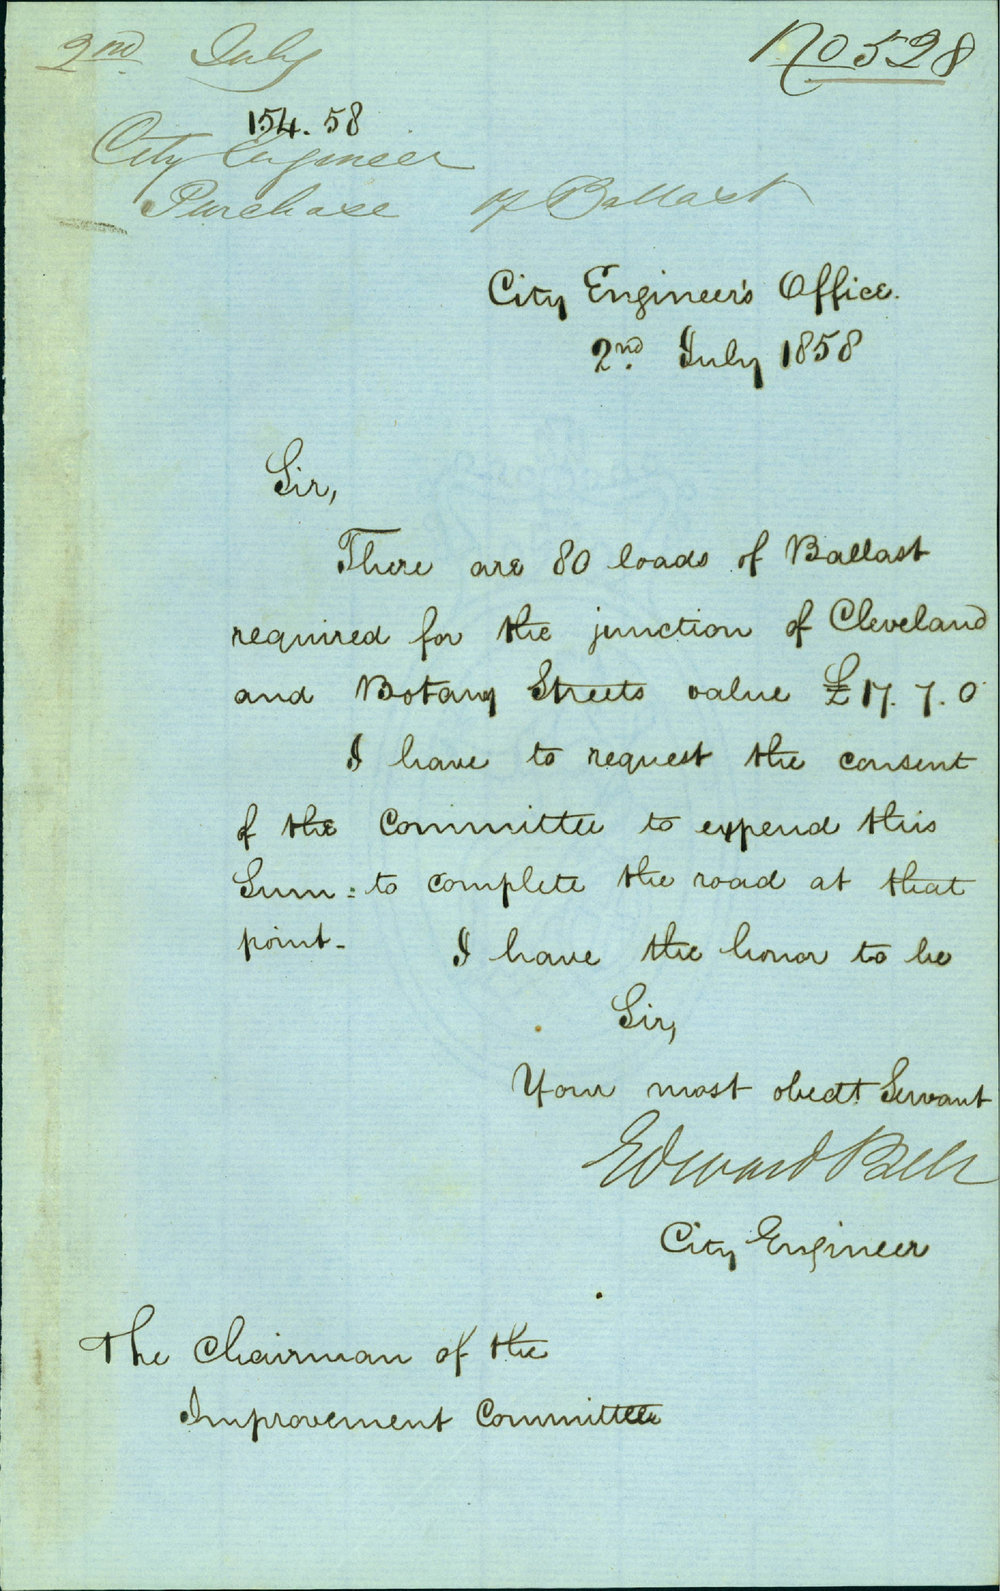 2nd July
No 528
154. 58
City Engineer
Purchase of Ballast
City Engineer's Office.
2nd. July 1858
Sir,
There are 80 loads of Ballast
required for the junction of Cleveland
and Botany Streets value £17. 7. 0
I have to request the consent
of the Committee to expend this
Sum : to complete the road at that
point - I have the honor to be
Sir,
Your most obedt Servant
Edward Bell
City Engineer
The Chairman of the
Improvement Committee